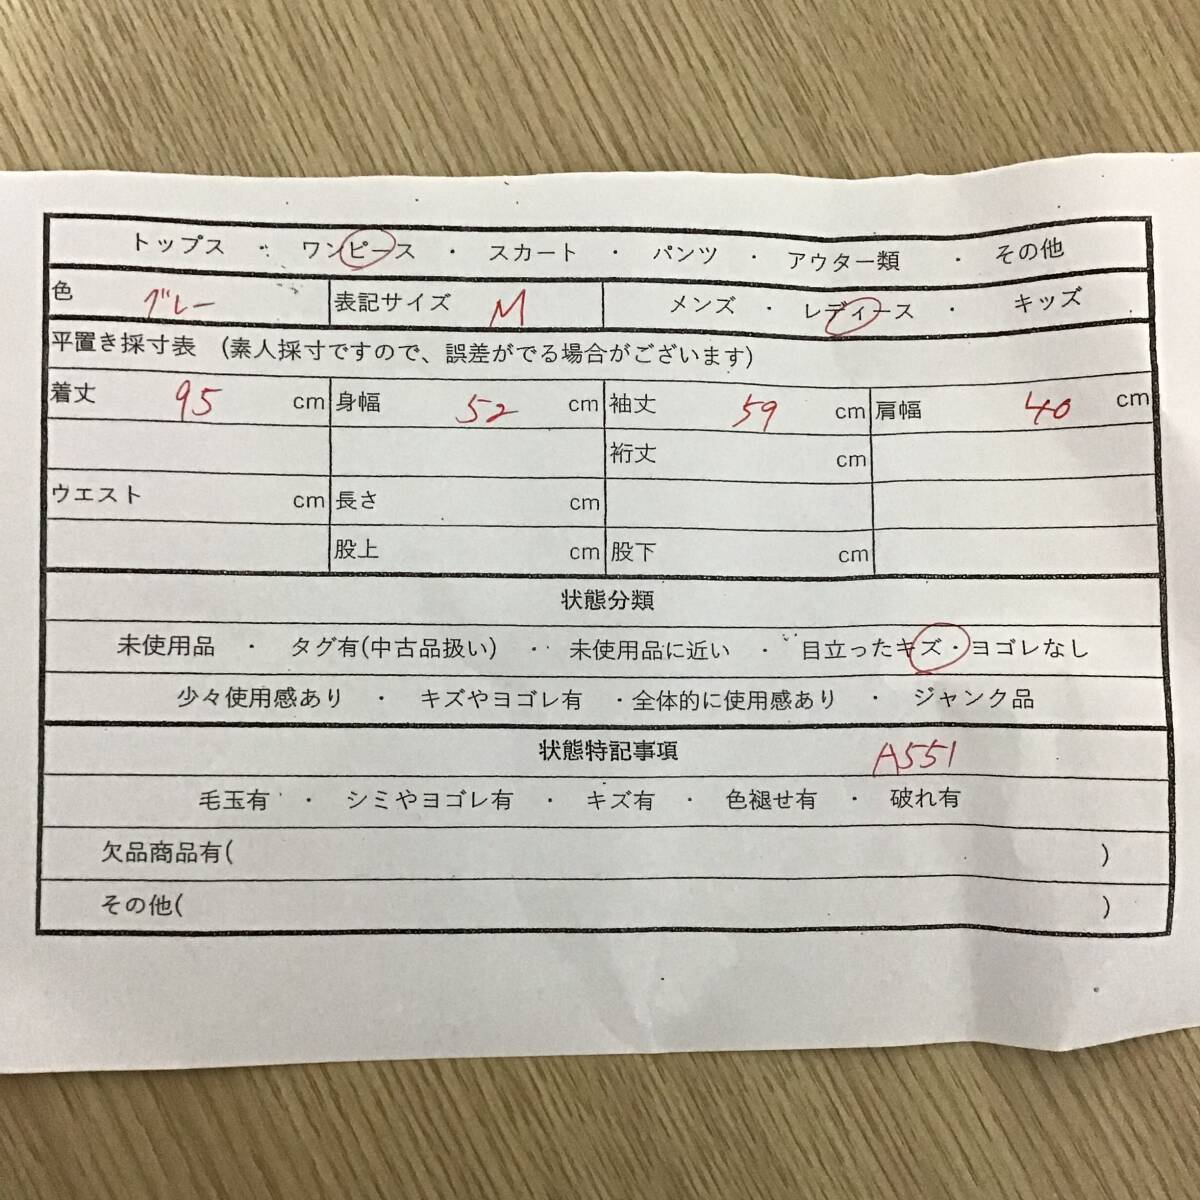 トップス ・ ワンピース ・ スカート ・ パンツ ・ アウター類 ・ その他
色 グレー 表記サイズ M メンズ ・ レディース ・ キッズ
平置き採寸表 (素人採寸ですので、誤差がでる場合がございます)
着丈 95 cm 身幅 52 cm 袖丈 59 cm 肩幅 40 cm
裄丈 cm
ウエスト cm 長さ cm
股上 cm 股下 cm
状態分類
未使用品 ・ タグ有(中古品扱い) ・ 未使用品に近い ・ 目立ったキズ・ヨゴレなし
少々使用感あり ・ キズやヨゴレ有 ・全体的に使用感あり ・ ジャンク品
状態特記事項 A551
毛玉有 ・ シミやヨゴレ有 ・ キズ有 ・ 色褪せ有 ・ 破れ有
欠品商品有( )
その他( )